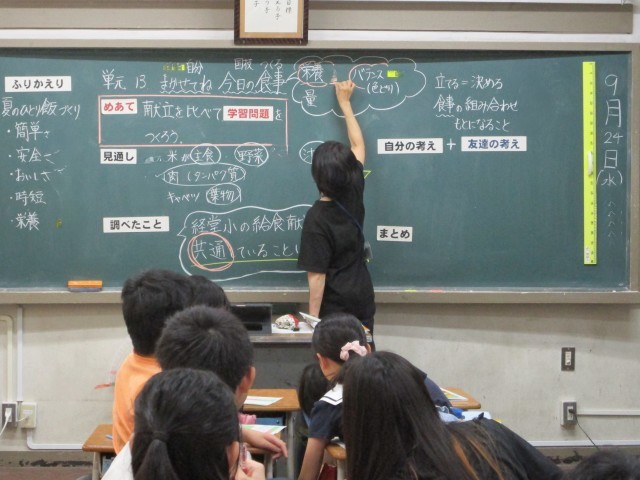 ふりかえり
夏のひとり飯づくり
・簡単さ
・安全さ
・おいしさ
・時短
・栄養
単元 13 まかせてね 今日の食事
自分
栄養
バランス
(色どり)
量
めあて 献立を比べて学習問題を
つくろう。
見通し
米 主食 野菜
肉(タンパク質)
キャベツ 葉物
調べたこと
経堂小の給食献
共通していること
立てる=決める
食事の組み合わせ
もとになること
自分の考え + 友達の考え
まとめ
9月24日(水)